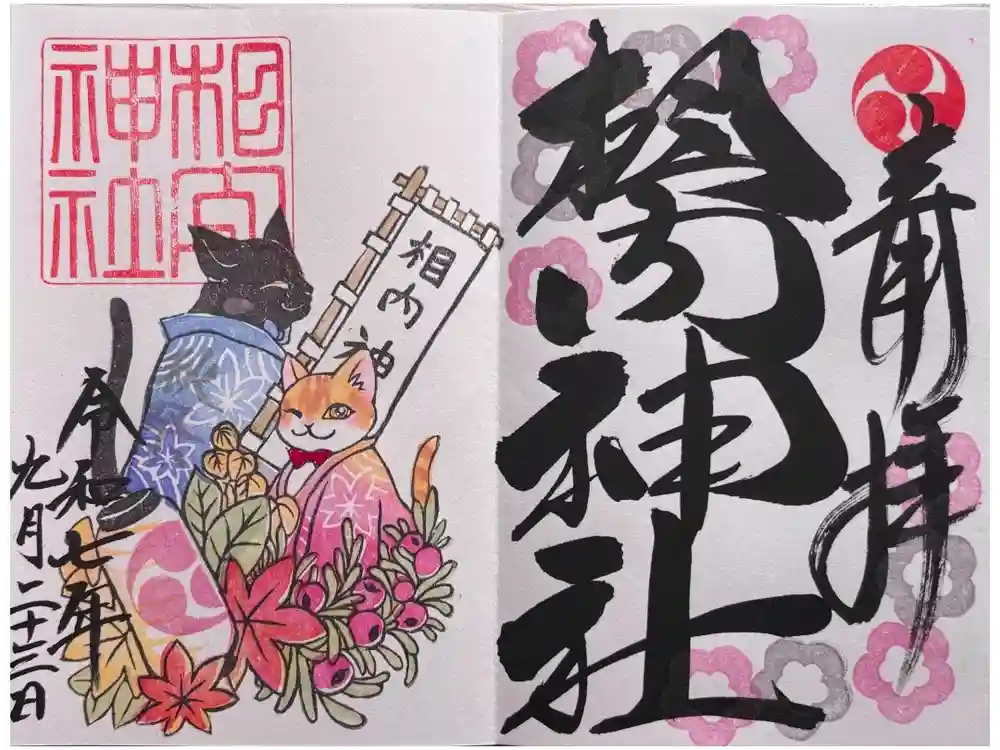 奉拝
相内神社
相内
神社
相内神
令和七年
九月二十三日